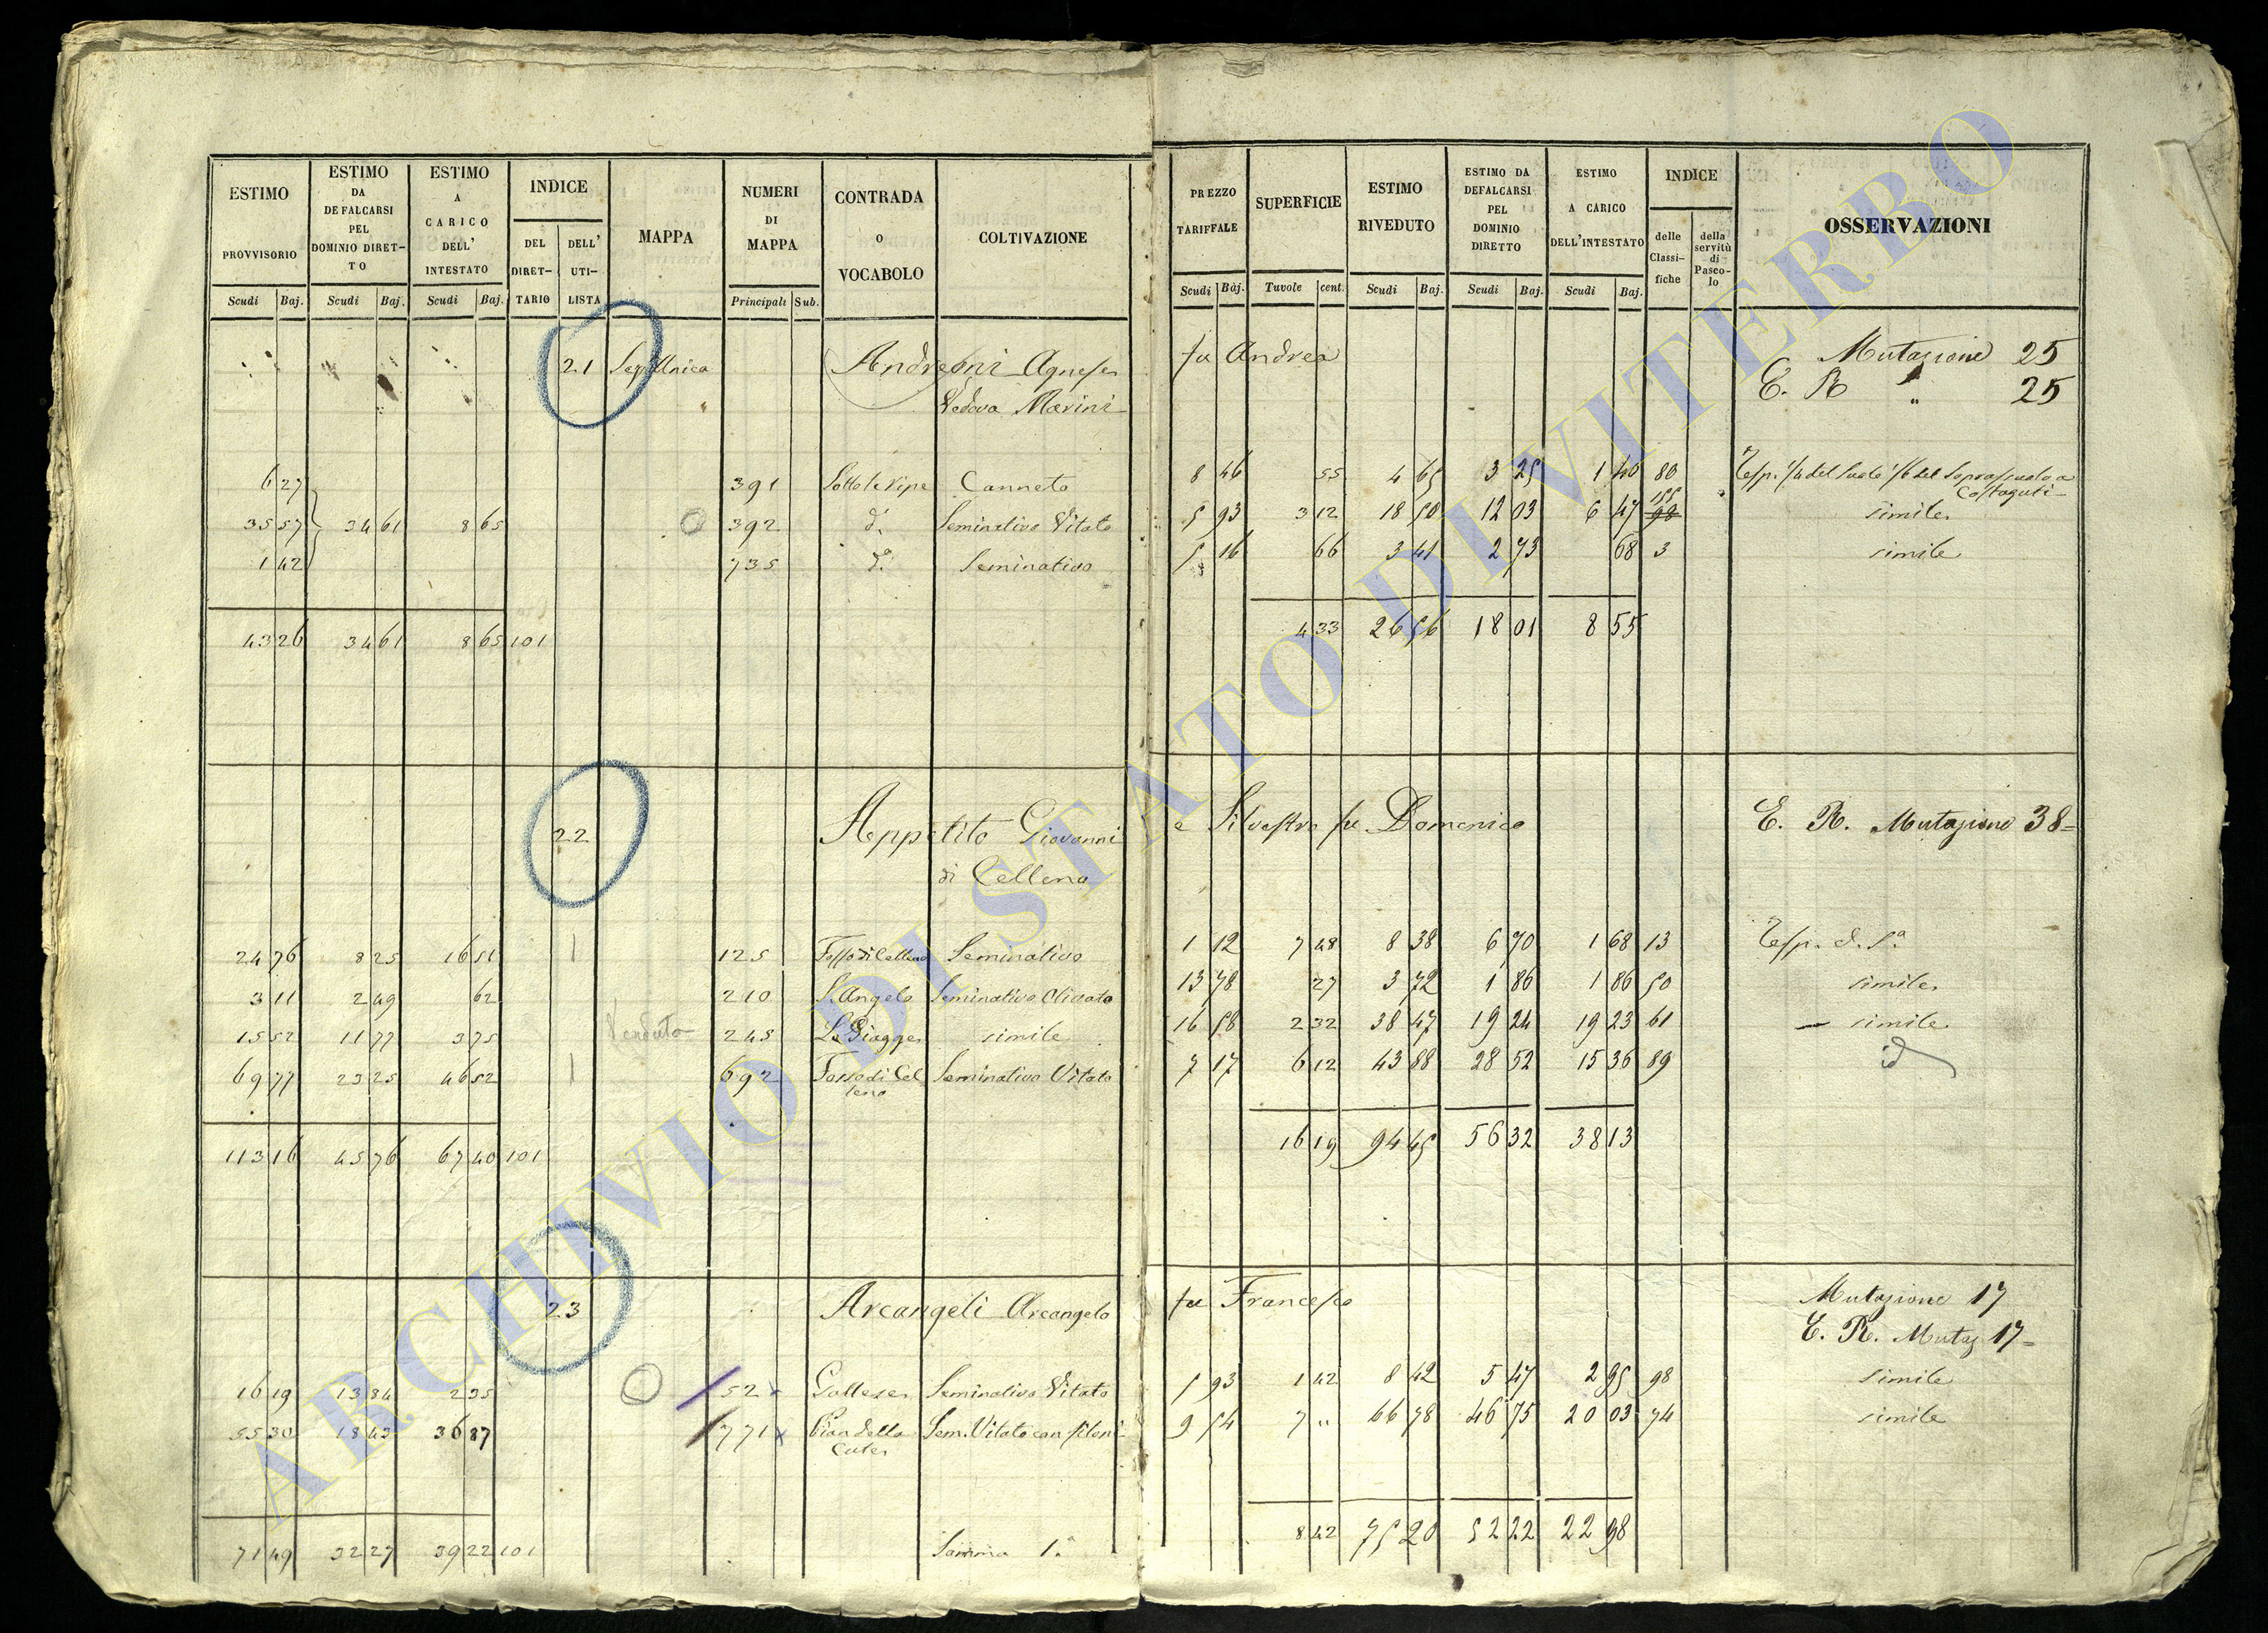 ESTIMO PROVVISORIO Scudi Baj. | ESTIMO DA DEFALCARSI PEL DOMINIO DIRET-TO Scudi Baj. | ESTIMO A CARICO DELL' INTESTATO Scudi Baj. | INDICE DEL DIRET-TARIO | DELL' UTI-LISTA | MAPPA | NUMERI DI MAPPA Principali Sub. | CONTRADA O VOCABOLO | COLTIVAZIONE | PREZZO TARIFFALE Scudi Baj. | SUPERFICIE Tavole cent. | ESTIMO RIVEDUTO Scudi Baj. | ESTIMO DA DEFALCARSI PEL DOMINIO DIRETTO Scudi Baj. | ESTIMO A CARICO DELL'INTESTATO Scudi Baj. | INDICE delle Classi-fiche | della servitù di Pasco-lo | OSSERVAZIONI
21 Unica Andreoni Agnese fu Andrea Mutazione 25
Vedova Marini E. R. " 25
6 27 391 Sotto le Ripe Canneto 8 46 55 4 65 3 25 1 40 80 Resp. 1/4 del suolo 1/6 del Soprasuolo a Costaguti
35 57 34 61 8 65 392 d.° Seminativo Vitato 5 93 3 12 18 50 12 03 6 47 98 simile
1 42 735 d.° Seminativo 5 16 66 3 41 2 73 68 3 simile
43 26 34 61 8 65 101 4 33 26 56 18 01 8 55
22 Appetito Giovanni e Silvestro fu Domenico E. R. Mutazione 38
di Celleno
24 76 8 25 16 51 125 Fosso di Celleno Seminativo 1 12 7 48 8 38 6 70 1 68 13
3 11 2 49 62 210 S. Angelo Seminativo Olivato 13 78 27 3 72 1 86 1 86 50 simile
15 52 11 77 3 75 Venduto 245 Le Piagge simile 16 58 2 32 38 47 19 24 19 23 61 simile
69 77 23 25 46 52 692 Fosso di Celleno Seminativo Vitato 7 17 6 12 43 88 28 52 15 36 89 id
113 16 45 76 67 40 101 16 19 94 45 56 32 38 13
23 Arcangeli Arcangelo fu Francesco Mutazione 17
E. R. Mutaz 17
16 19 13 84 2 35 52 Gallese Seminativo Vitato 5 93 1 42 8 42 5 47 2 95 98 simile
55 30 18 43 36 87 771 Sem. Vitato con 9 54 7 " 66 78 46 75 20 03 74 simile
71 49 32 27 39 22 101 Somma 1.ª 8 42 75 20 52 22 22 98
ARCHIVIO DI STATO DI VITERBO